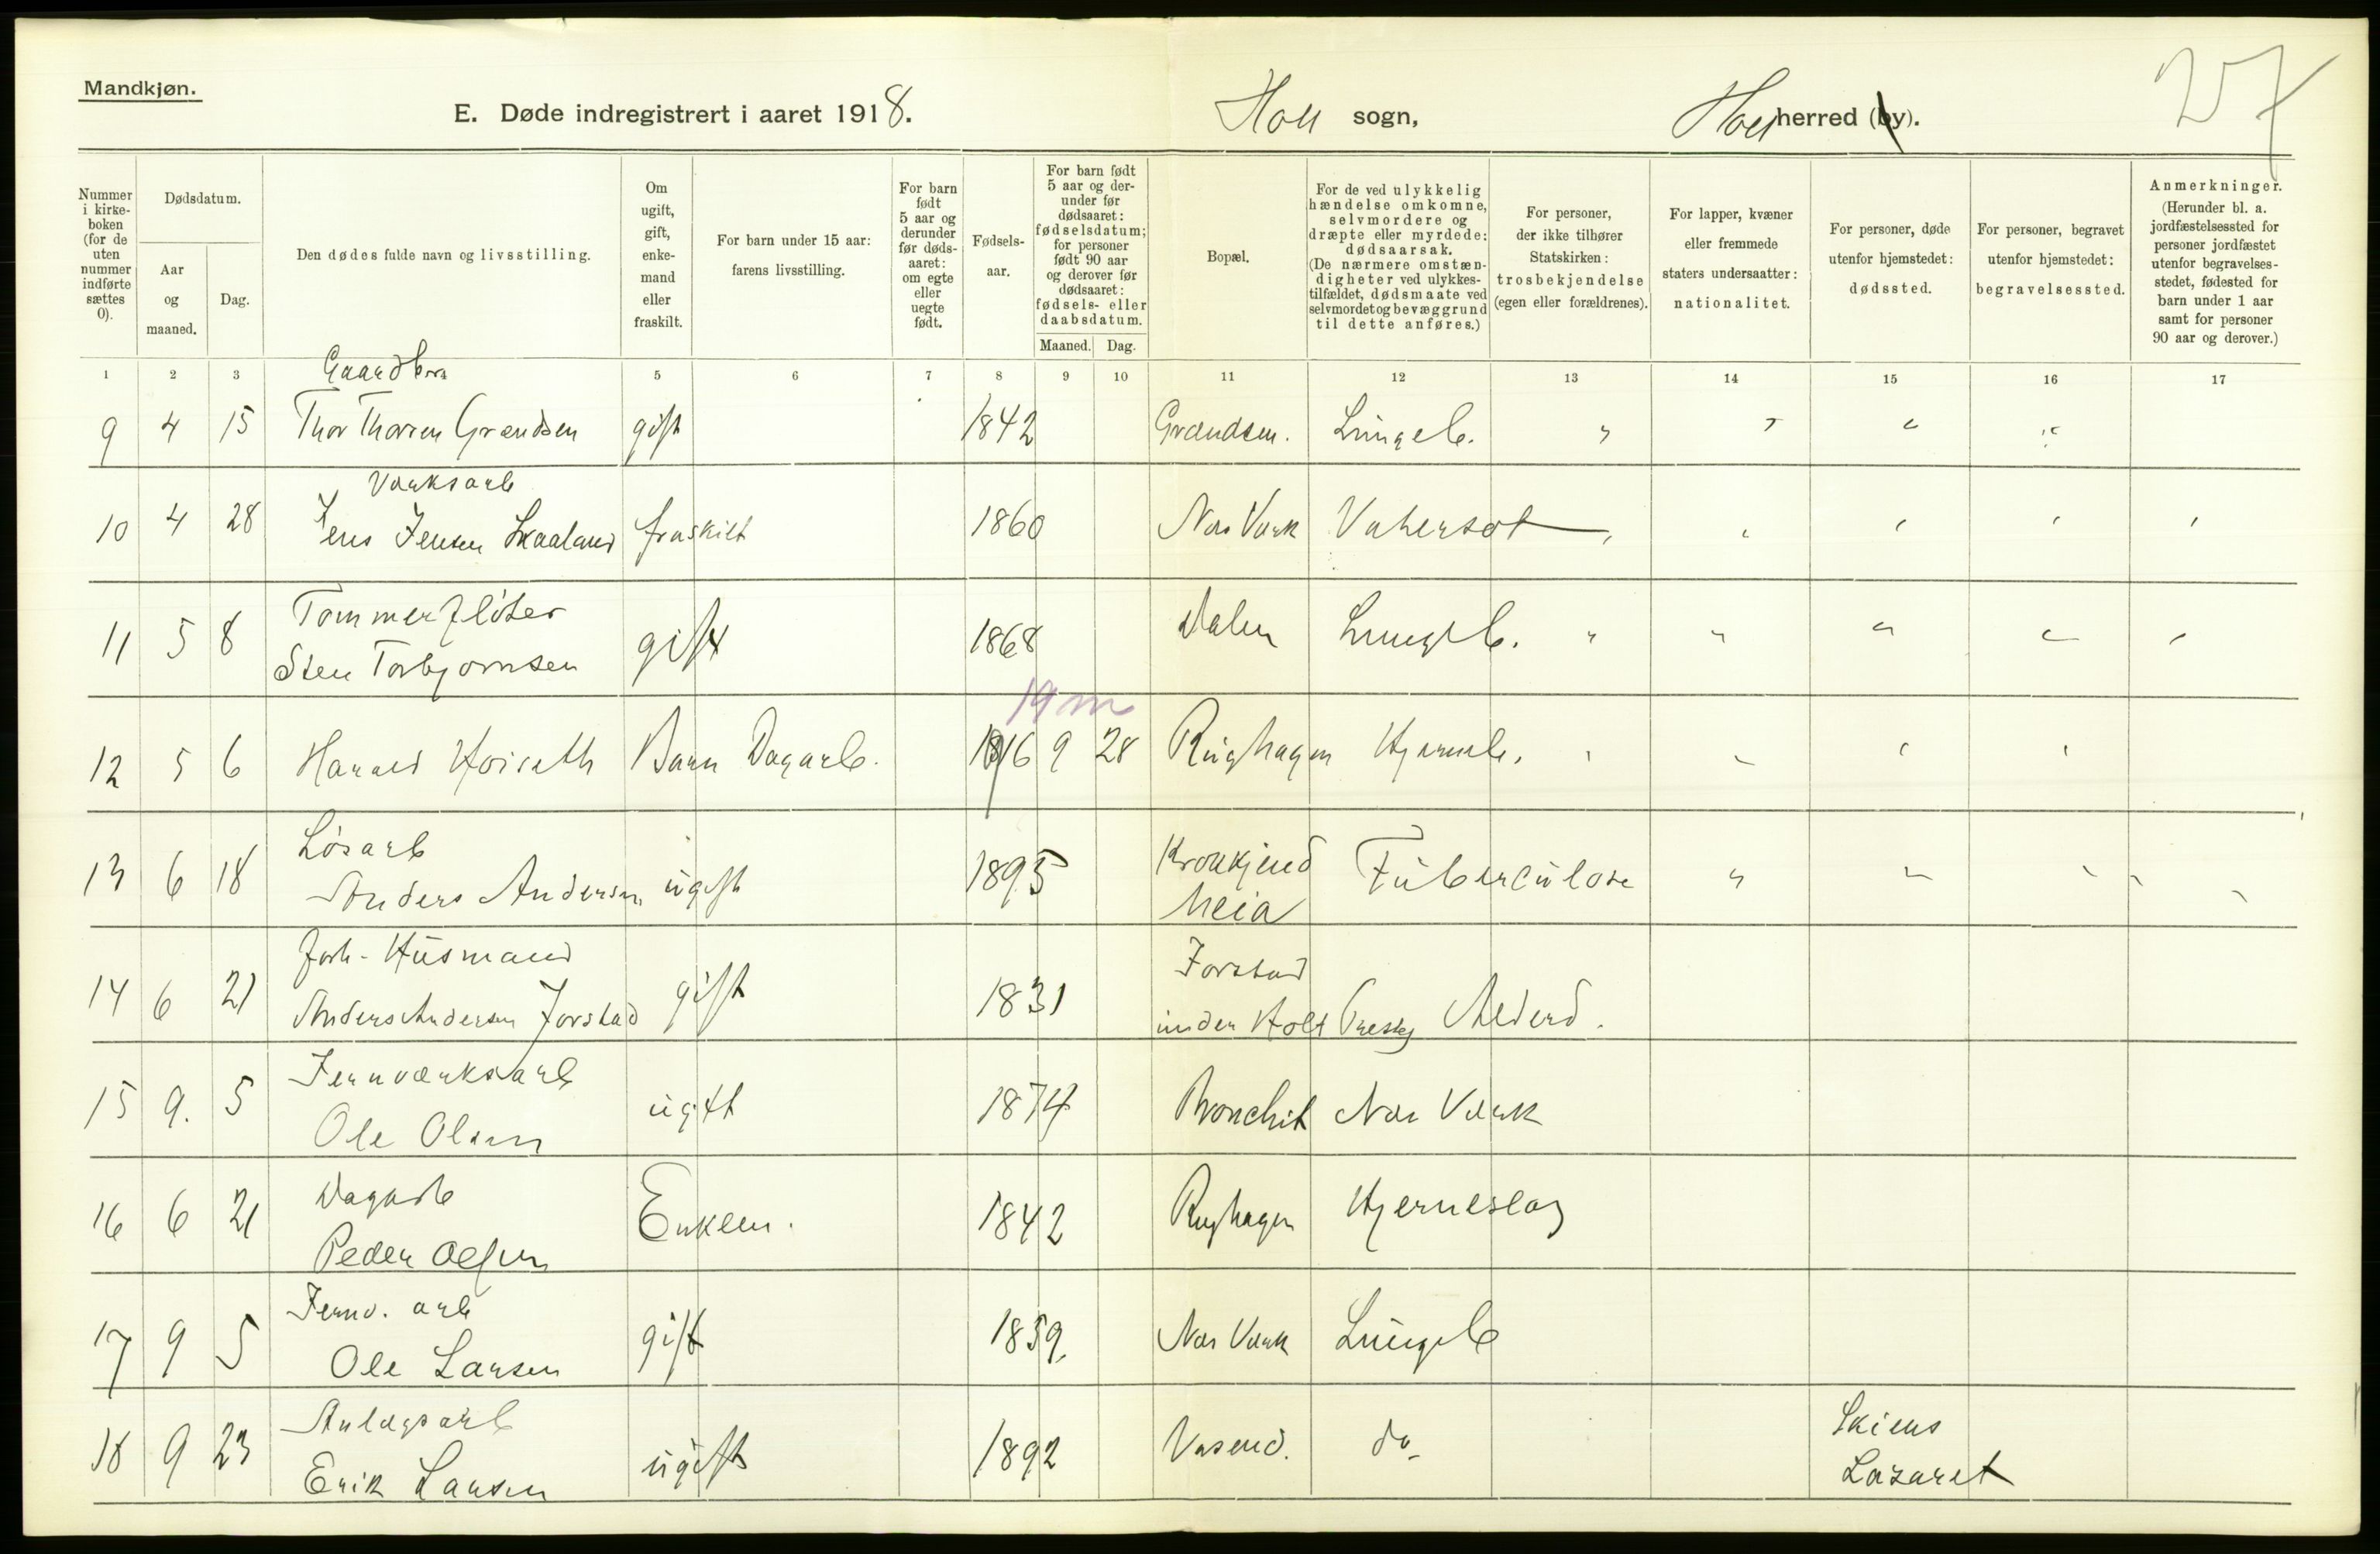 Mandkjøn.
E. Døde indregistrert i aaret 1918.
Holt sogn,
Holt herred (by).
27
Nummer i kirkeboken (for de uten nummer indførte sættes 0).
Dødsdatum.
Aar og maaned.
Dag.
Den dødes fulde navn og livsstilling.
Om ugift, gift, enkemand eller fraskilt.
For barn under 15 aar: farens livsstilling.
For barn født 5 aar og derunder før dødsaaret: om egte eller uegte født.
Fødselsaar.
For barn født 5 aar og derunder før dødsaaret: fødselsdatum; for personer født 90 aar og derover før dødsaaret: fødsels- eller daabsdatum.
Maaned. Dag.
Bopæl.
For de ved ulykkelig hændelse omkomne, selvmordere og dræpte eller myrdede: dødsaarsak. (De nærmere omstændigheter ved ulykkestilfældet, dødsmaate ved selvmordet og bevæggrund til dette anføres.)
For personer, der ikke tilhører Statskirken: trosbekjendelse (egen eller forældrenes).
For lapper, kvæner eller fremmede staters undersaatter: nationalitet.
For personer, døde utenfor hjemstedet: dødssted.
For personer, begravet utenfor hjemstedet: begravelsessted.
Anmerkninger. (Herunder bl. a. jordfæstelsessted for personer jordfæstet utenfor begravelsesstedet, fødested for barn under 1 aar samt for personer 90 aar og derover.)
1 2 3 5 6 7 8 9 10 11 12 13 14 15 16 17
Gaardbr
9 4 15 Thor Thorsen Grændsen gift 1842 Grændsen. Lungeb. " " " "
Værksarb
10 4 28 Jens Jensen Skaaland fraskilt 1860 Næs Værk Vatersot " " " " "
Tømmerfløter
11 5 8 Sten Torbjørnsen gift 1868 Dalen Lungeb. " " " " "
19 m
12 5 6 Harald Barn Dagarb. 1916 9 28 Ringhagen Hjerneb. " " " "
Løsarb
13 6 18 Anders Andersen ugift 1895 Krokkjend heia Tuberculose " " " " "
forh. Husmand
14 6 21 Anders Andersen Jorstad gift 1831 Jorstad under Holt Presteg Alderd.
Jernværksarb
15 9. 5 Ole Olsen ugift 1874 Bronchit Næs Værk
Dagarb
16 6 21 Peder Olsen Enkem. 1842 Ringhagen Hjerneslag
Jernv. arb
17 9 5 Ole Larsen gift 1859. Næs Værk Lungeb
Anlægsarb
18 9 23 Erik Larsen ugift 1892 Vasend. do. Skiens Lazaret